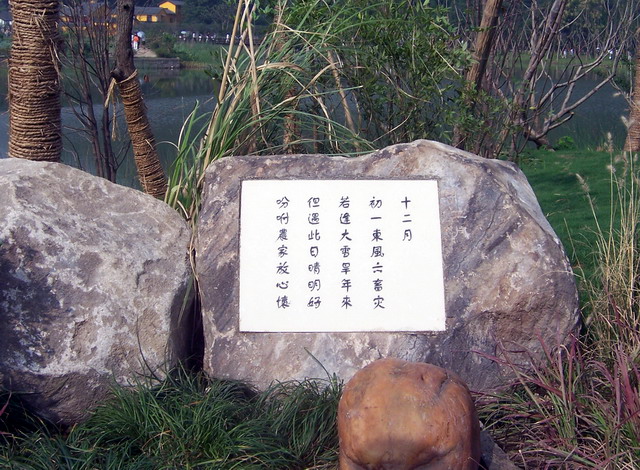 十二月
初一東風六畜灾
若逢大雪旱年來
但遇此日晴明好
吩咐農家放心懷